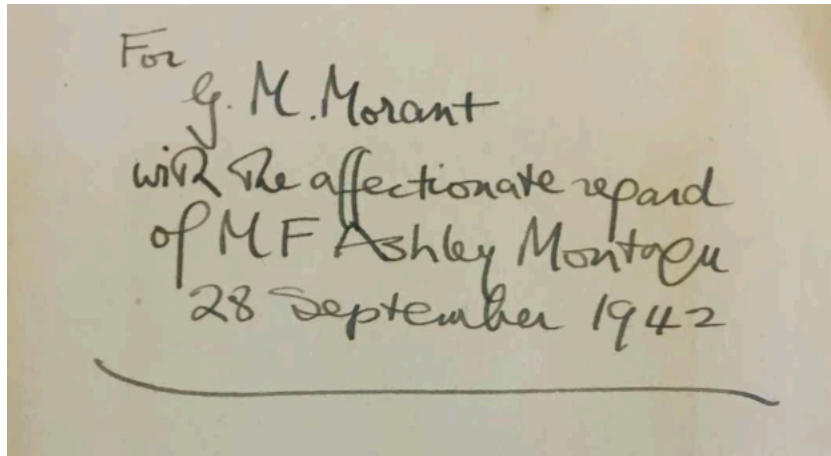 For
G. M. Morant
with the affectionate regard
of M F Ashley Montagu
28 September 1942